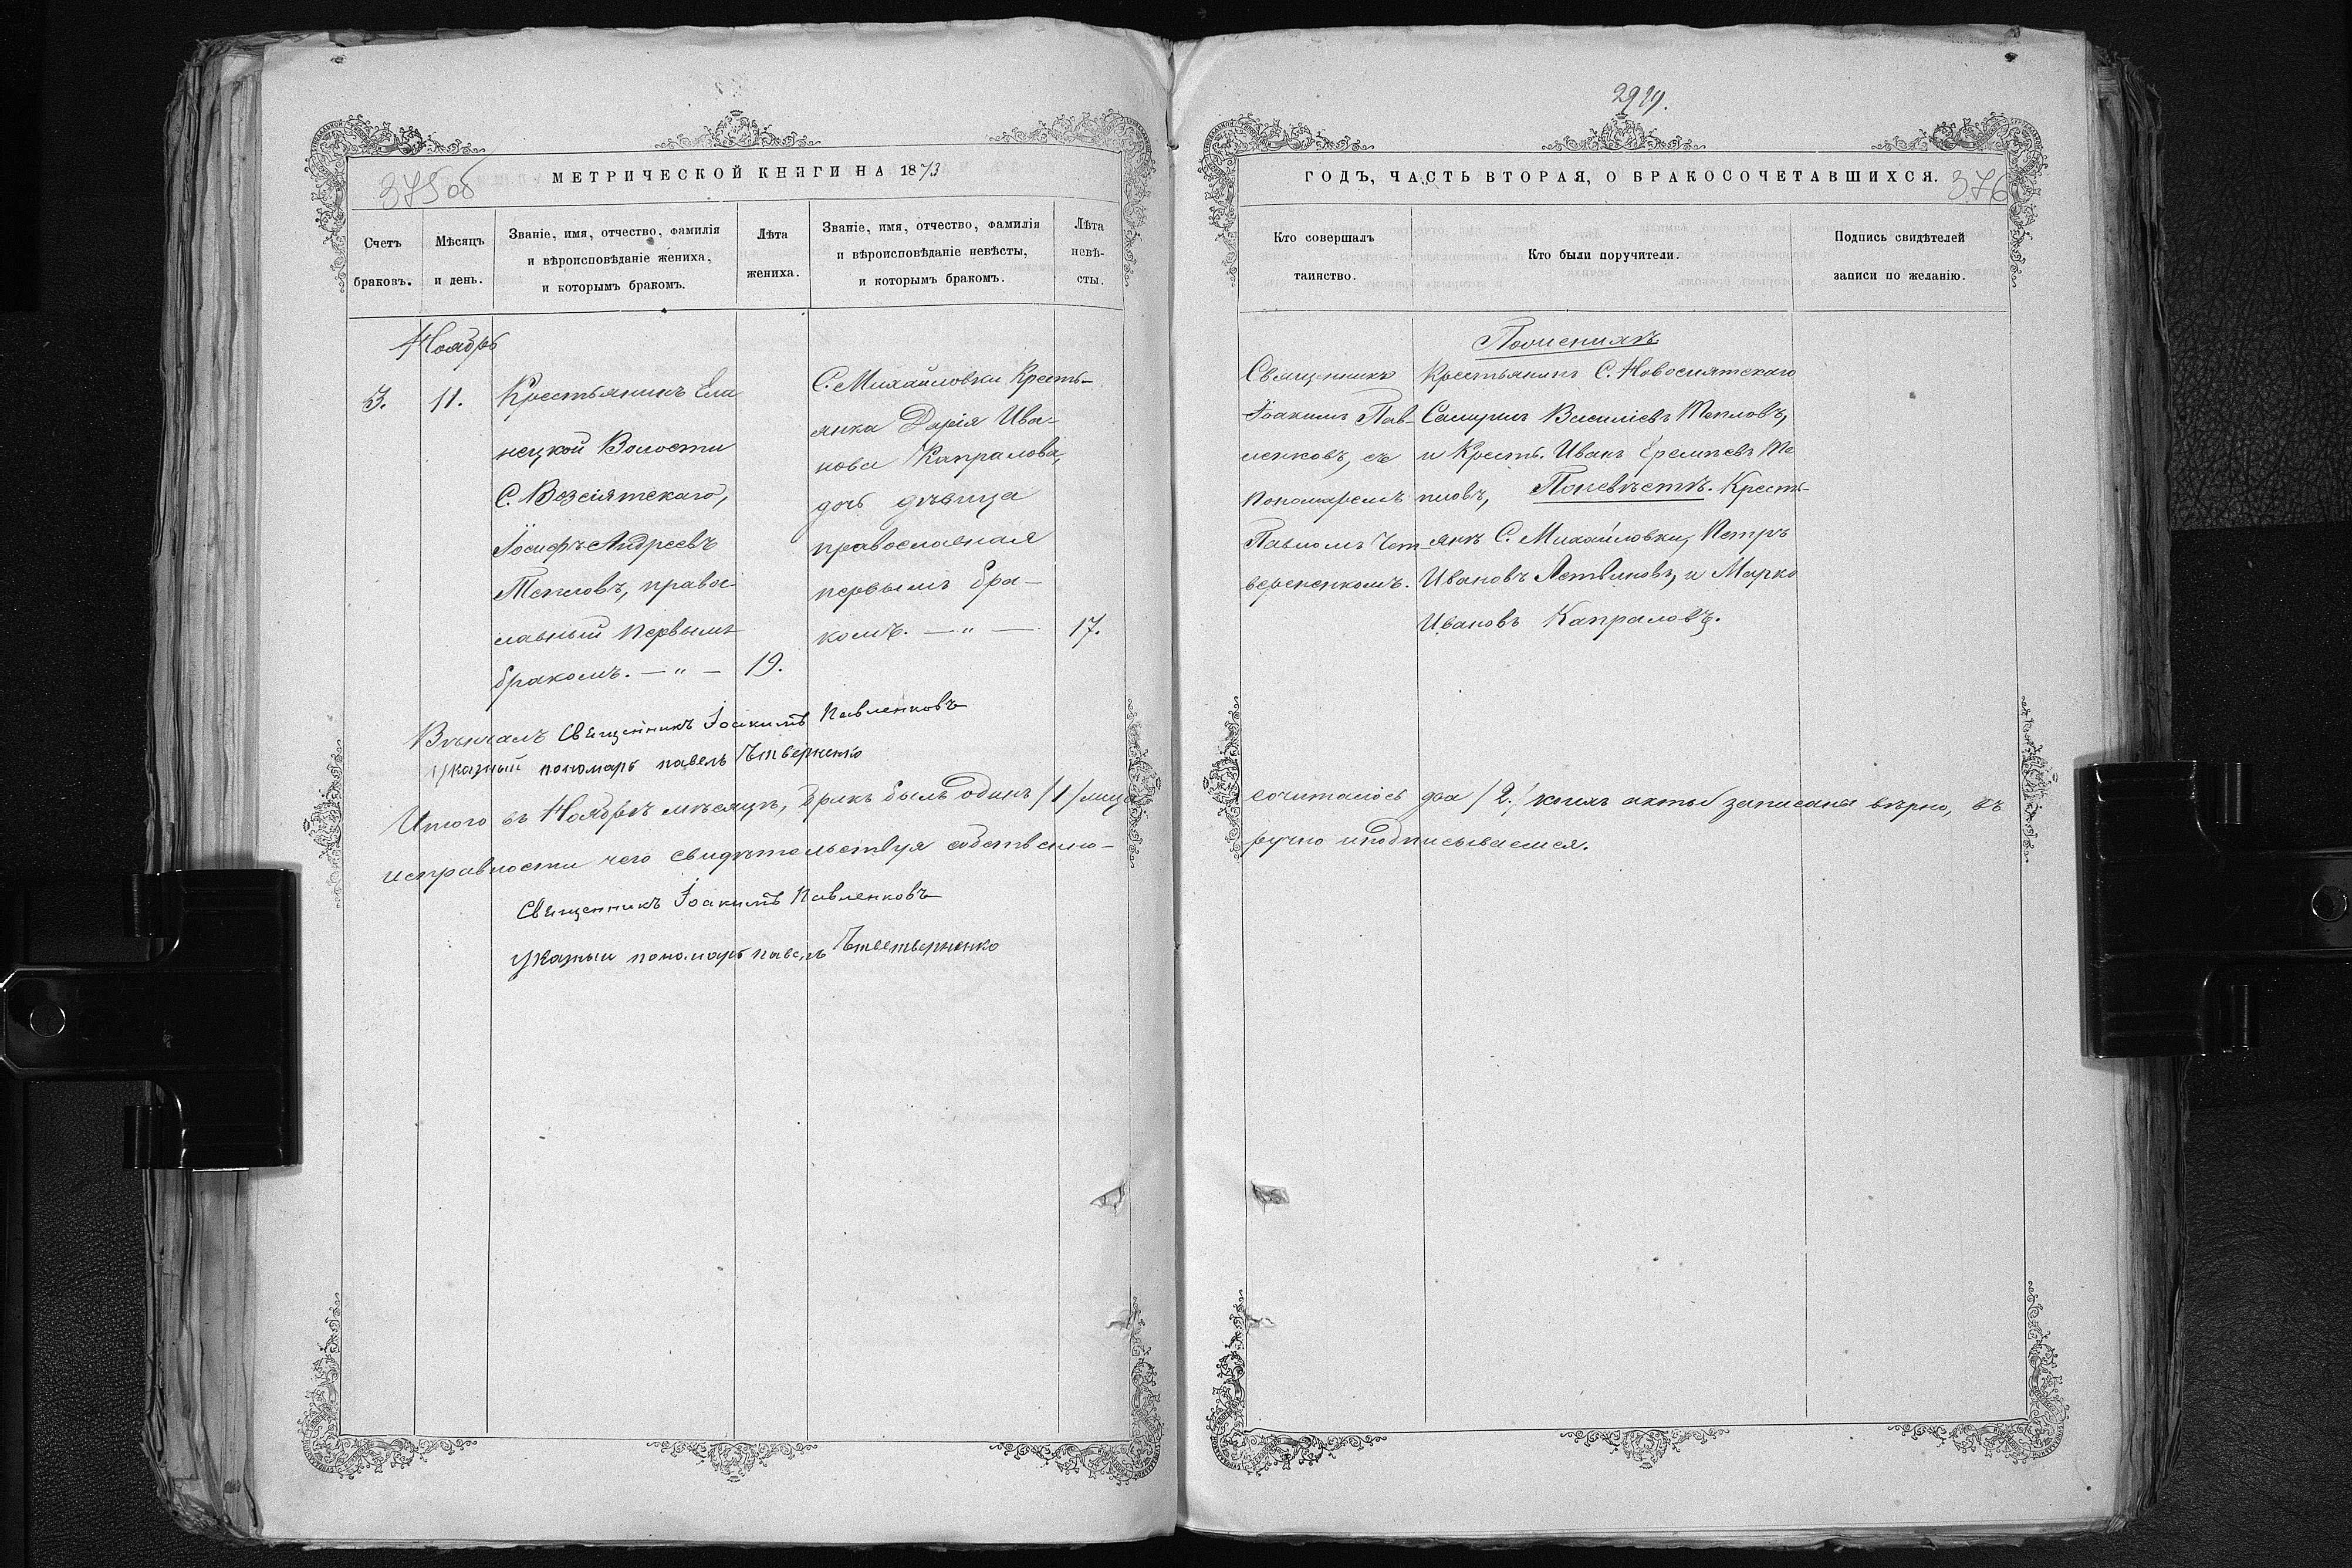 375об
МЕТРИЧЕСКОЙ КНИГИ НА 1873
Счетъ браковъ.
Мѣсяцъ и день.
Званіе, имя, отчество, фамилія
и вѣроисповѣданіе жениха,
и которымъ бракомъ.
Лѣта
жениха.
Званіе, имя, отчество, фамилія
и вѣроисповѣданіе невѣсты,
и которымъ бракомъ.
Лѣта
невѣ-
сты.
Ноябрь
3.
11.
Крестьянинъ Ела
нецкой Волости
С. Возсіятскаго,
Іосифъ Андреевъ
Тепловъ, правос-
лавный первымъ
бракомъ. — " —
19.
С. Михайловки Кресть-
янка Дарія Ива-
нова Капралова,
дочь дѣвица
православная
первымъ бра-
комъ. — " —
17.
Вѣнчалъ Священникъ Іоакимъ Павленковъ
Указный пономарь павелъ
Итого въ Ноябрѣ мѣсяцѣ, бракъ былъ одинъ /1/ лица
исправности чего свидѣтельствуя собственно-
Священникъ Іоакимъ Павленковъ
Указный пономарь павелъ
2919.
ГОДЪ, ЧАСТЬ ВТОРАЯ, О БРАКОСОЧЕТАВШИХСЯ.
376
Кто совершалъ
таинство.
Кто были поручители.
Подпись свидѣтелей
записи по желанію.
Священникъ
Іоакимъ Пав-
ленковъ, съ
Пономаремъ
Павломъ Чет-
веренкомъ.
Поженихѣ
Крестьянинъ С. Новосіятскаго
Василіевъ Тепловъ,
и Кресть. Иванъ Еремѣевъ Те
пловъ, Поневѣстѣ. Кресть-
янъ С. Михайловки, Петръ
Ивановъ Литвиновъ, и Марко
Ивановъ Капраловъ.
сочиталось два /2./ коихъ акты записаны вѣрно, въ
ручно иподписываемся.